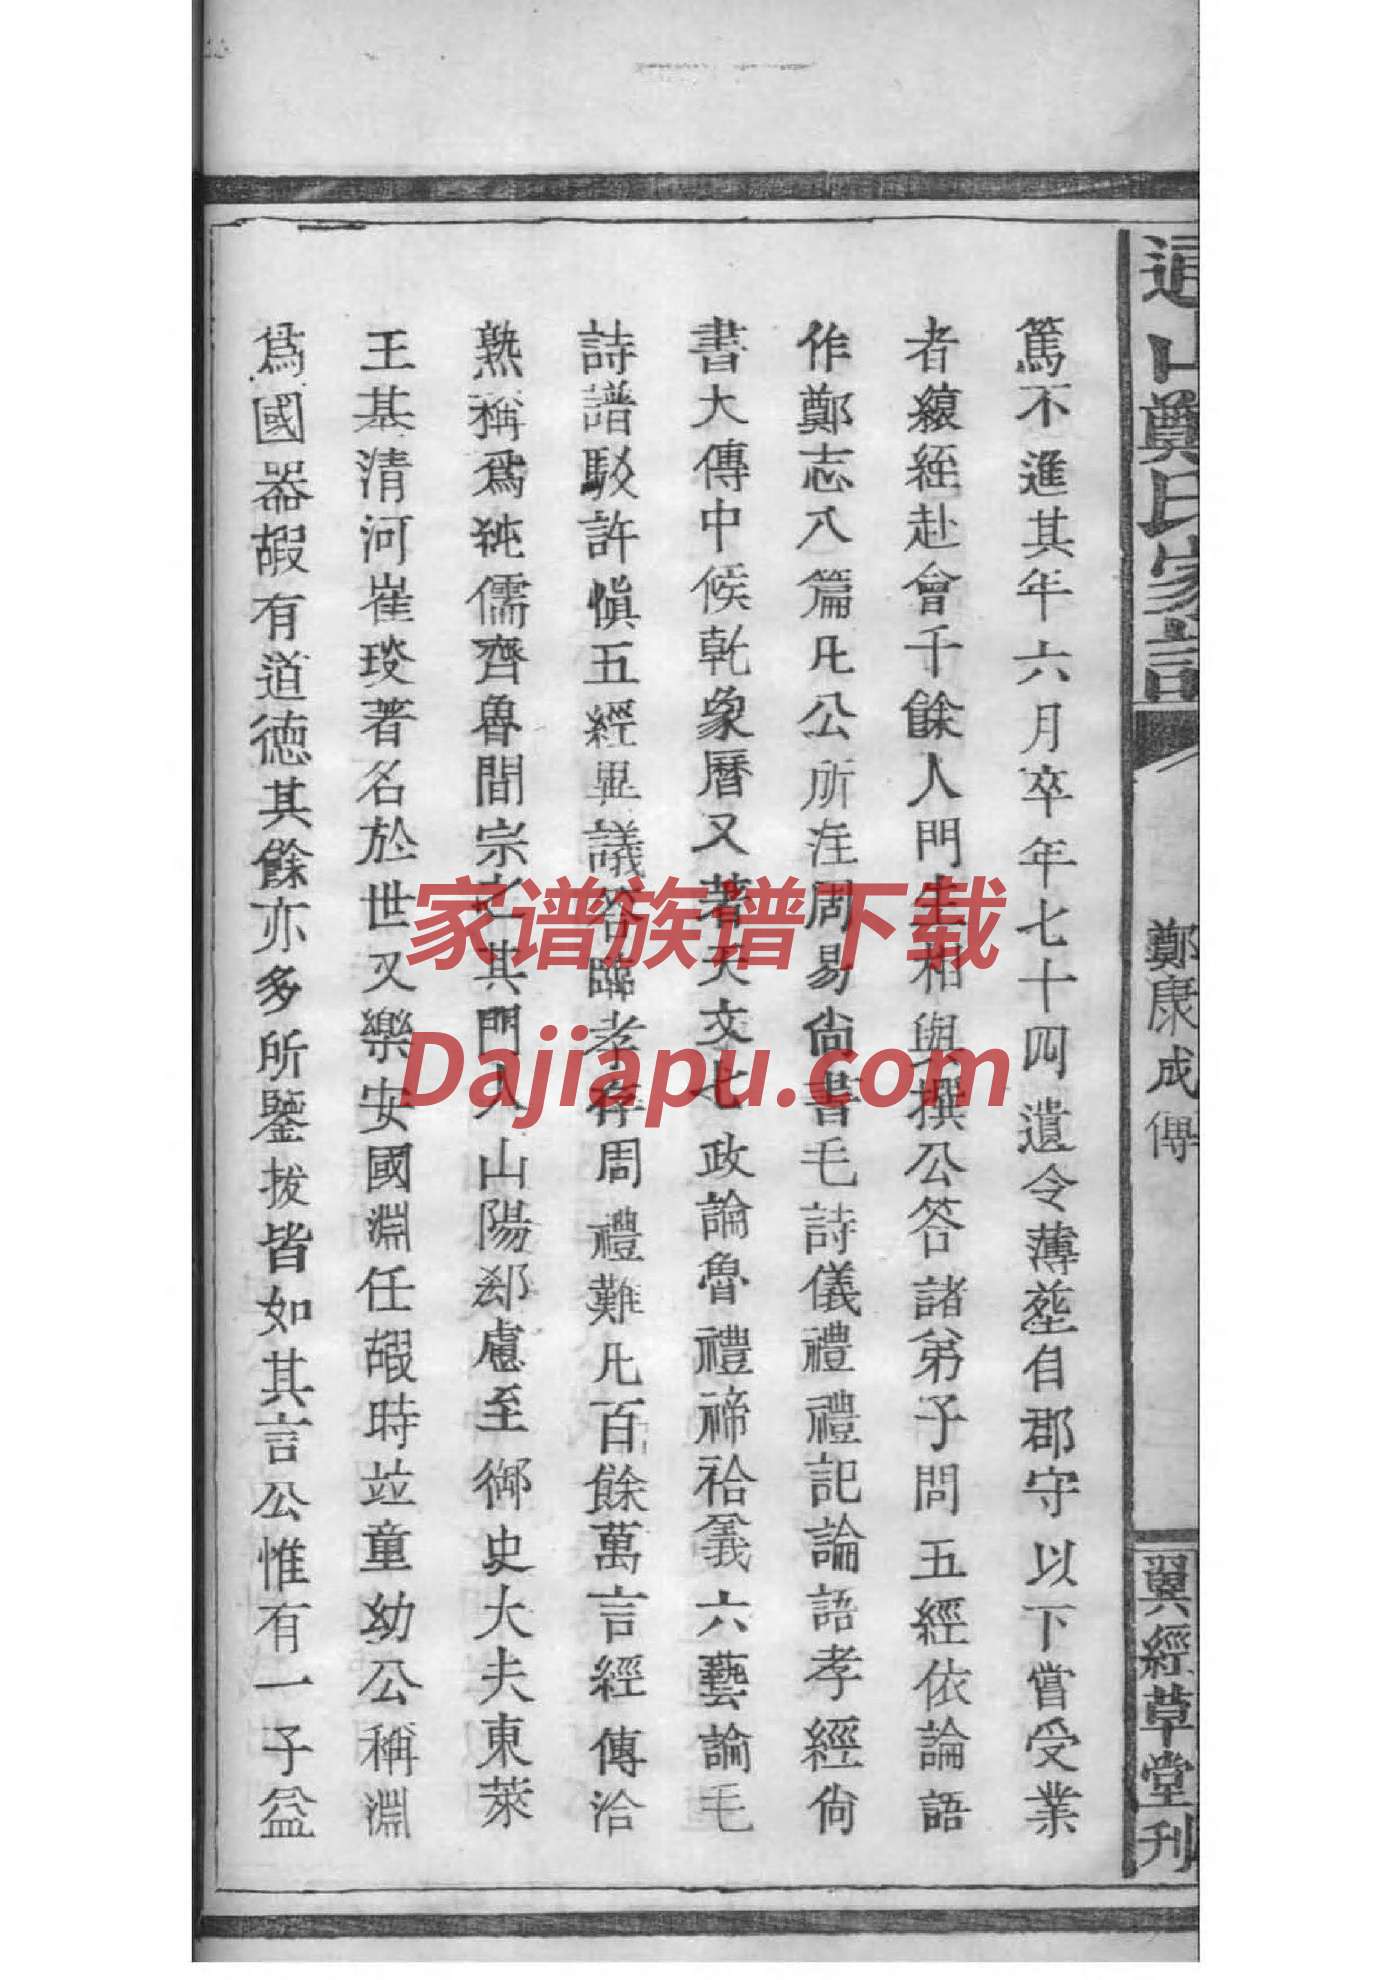 通山鄭氏家譜
鄭康成傳
翼經草堂刊
篤不進其年六月卒年七十四遺令薄塟自郡守以下嘗受業
者縗絰赴會千餘人門生相與撰公答諸弟子問五經依論語
作鄭志八篇凡公所注周易尙書毛詩儀禮禮記論語孝經尙
書大傳中候乾象曆又著天文七政論魯禮禘祫義六藝論毛
詩譜駁許愼五經異議答臨孝存周禮難凡百餘萬言經傳洽
熟稱爲純儒齊魯間宗之其門人山陽郄慮至御史大夫東萊
王基清河崔琰著名於世又樂安國淵任嘏時竝童幼公稱淵
爲國器嘏有道德其餘亦多所鑒拔皆如其言公惟有一子益
家谱族谱下载
Dajiapu.com